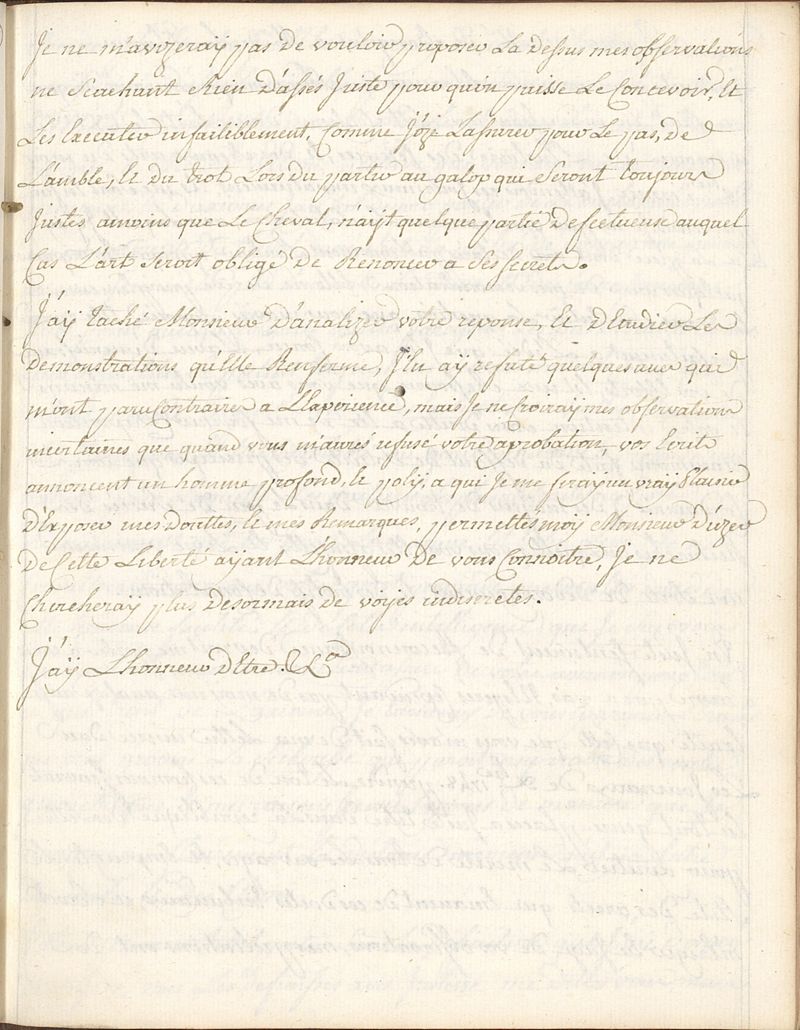 Je ne m'avizeray pas de vouloir proposer La dessus mes observations
ne Scachant Rien d'assés Juste pour qu'on puisse Le Concevoir, Et
Les Executer infailliblement, Comme J'oze L'assurer pour Le pas, de
L'amble, Et du trot Lors du partir au galop qui Seront toujours
Justes amoins que Le Cheval, n'ayt quelque partie Defectueuse auquel
Cas L'art Seroit obligé de Renoncer a Ses Secrets.
J'ay taché Monsieur d'analizer votre reponse, Et d'Etudier Les
Demonstrations qu'Elle Renferme, J'En ay refuté quelques unes qui
m'ont paru Contraires a L'Experience, mais Je ne Croiray mes observations
incertaines que quand vous m'aurés refusé votre aprobation, vos Ecrits
annoncent un homme profond, et poly, a qui Je me feray un vray Plaisir
D'Exposer mes Doutes, et mes Remarques, permettés moy Monsieur D'uzer
De Cette Liberté ayant L'honneur De vous Connoitre, Je ne
Chercheray plus Desormais de voyes indiscretes.
J'ay L'honneur D'Etre. &Ca